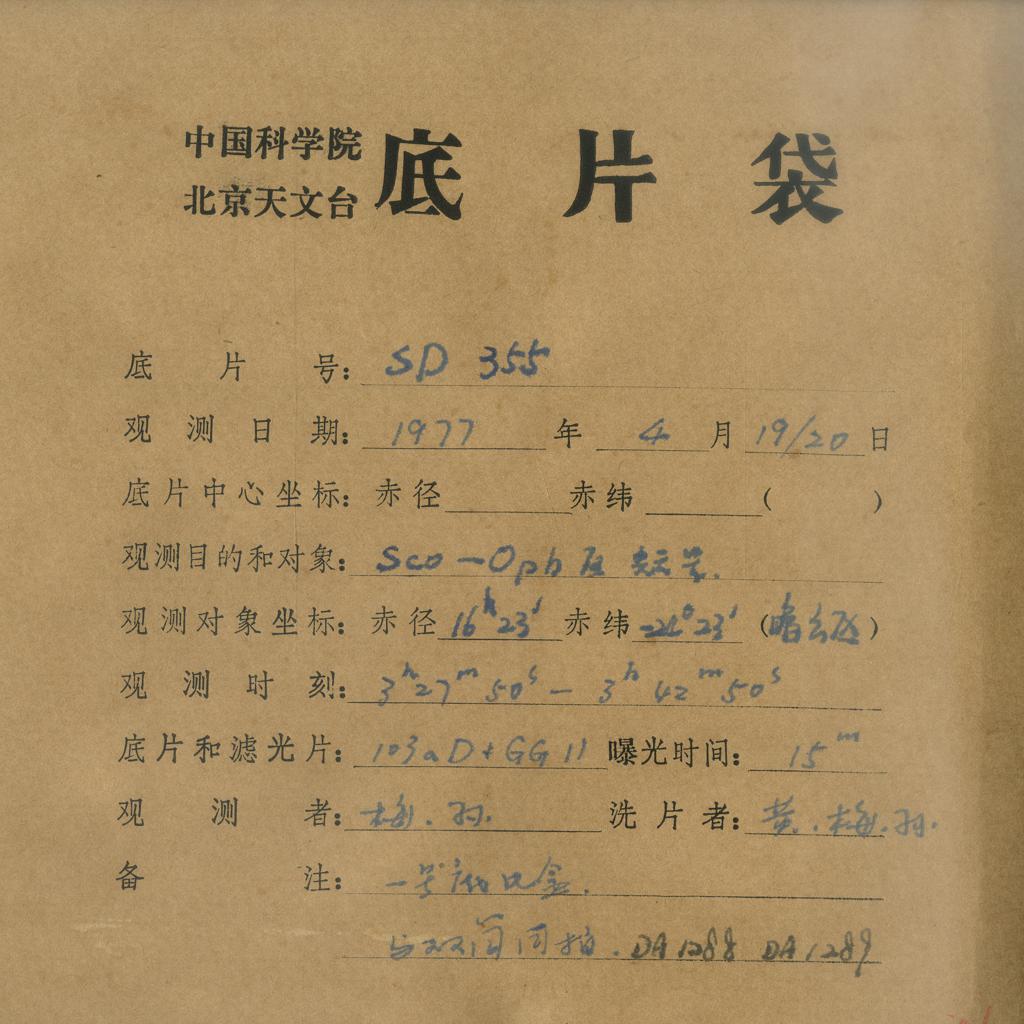 中国科学院
北京天文台
底片袋
底片号： SD 355
观测日期： 1977 年 4 月 19/20 日
底片中心坐标：赤径 赤纬 ( )
观测目的和对象： Sco-Oph
观测对象坐标：赤径 16h 23' 赤纬 23' (暗云区)
观测时刻： 3h 27m 50s - 3h 42m 50s
底片和滤光片： 103aD+GG 11 曝光时间： 15m
观测者： 梅.孙. 洗片者： 黄.梅.孙.
备注： 一号 盒.
与双筒同拍. DA 1288 DA 1289